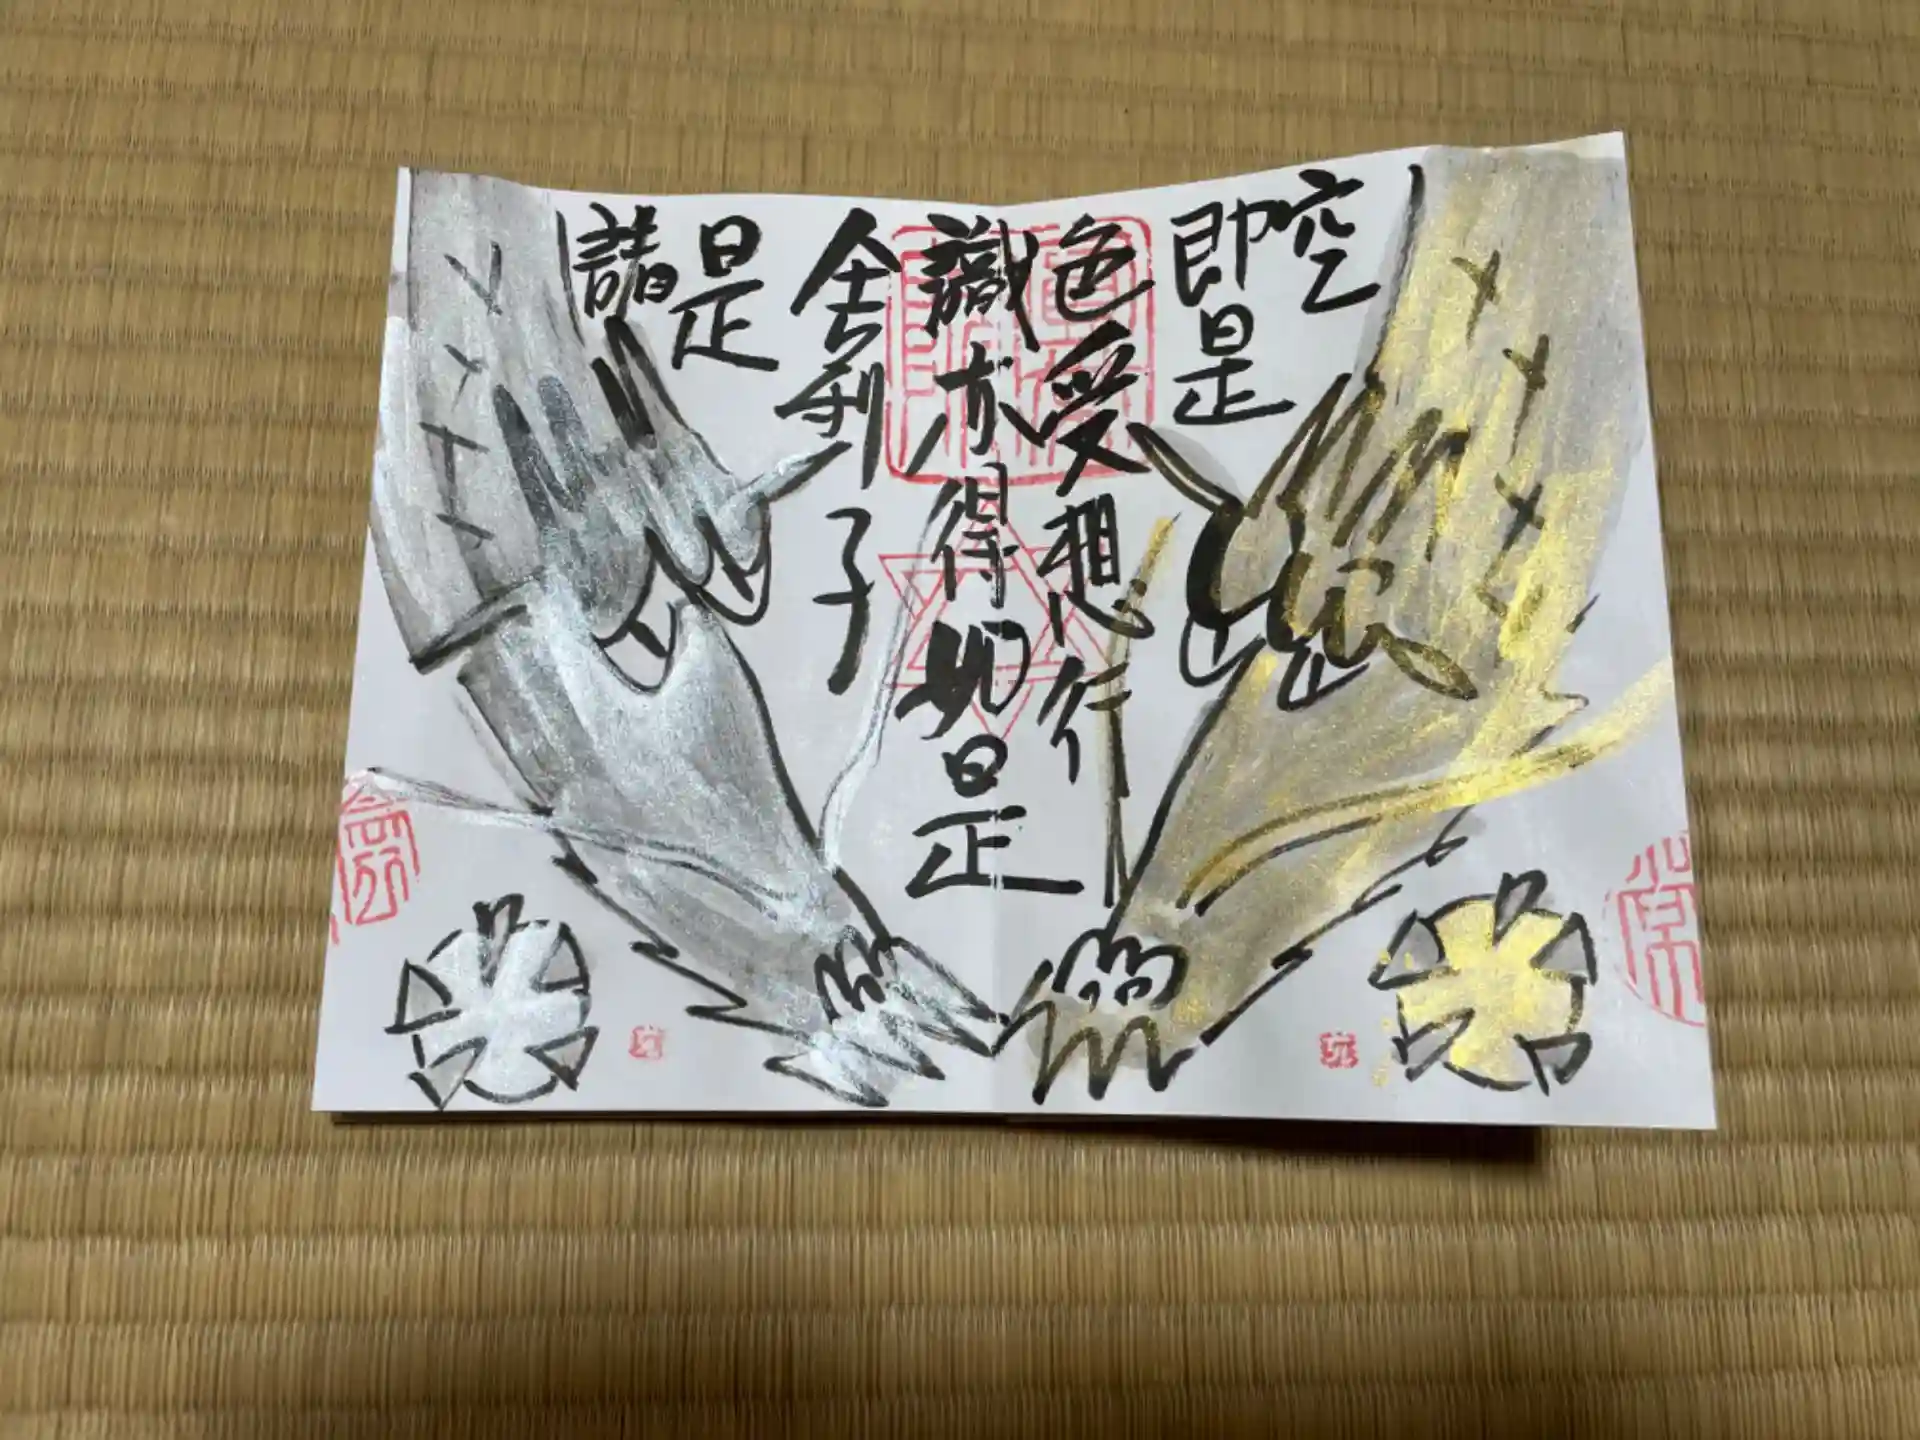 空
即是
色受想行
識亦復如是
舎利子
是
諸